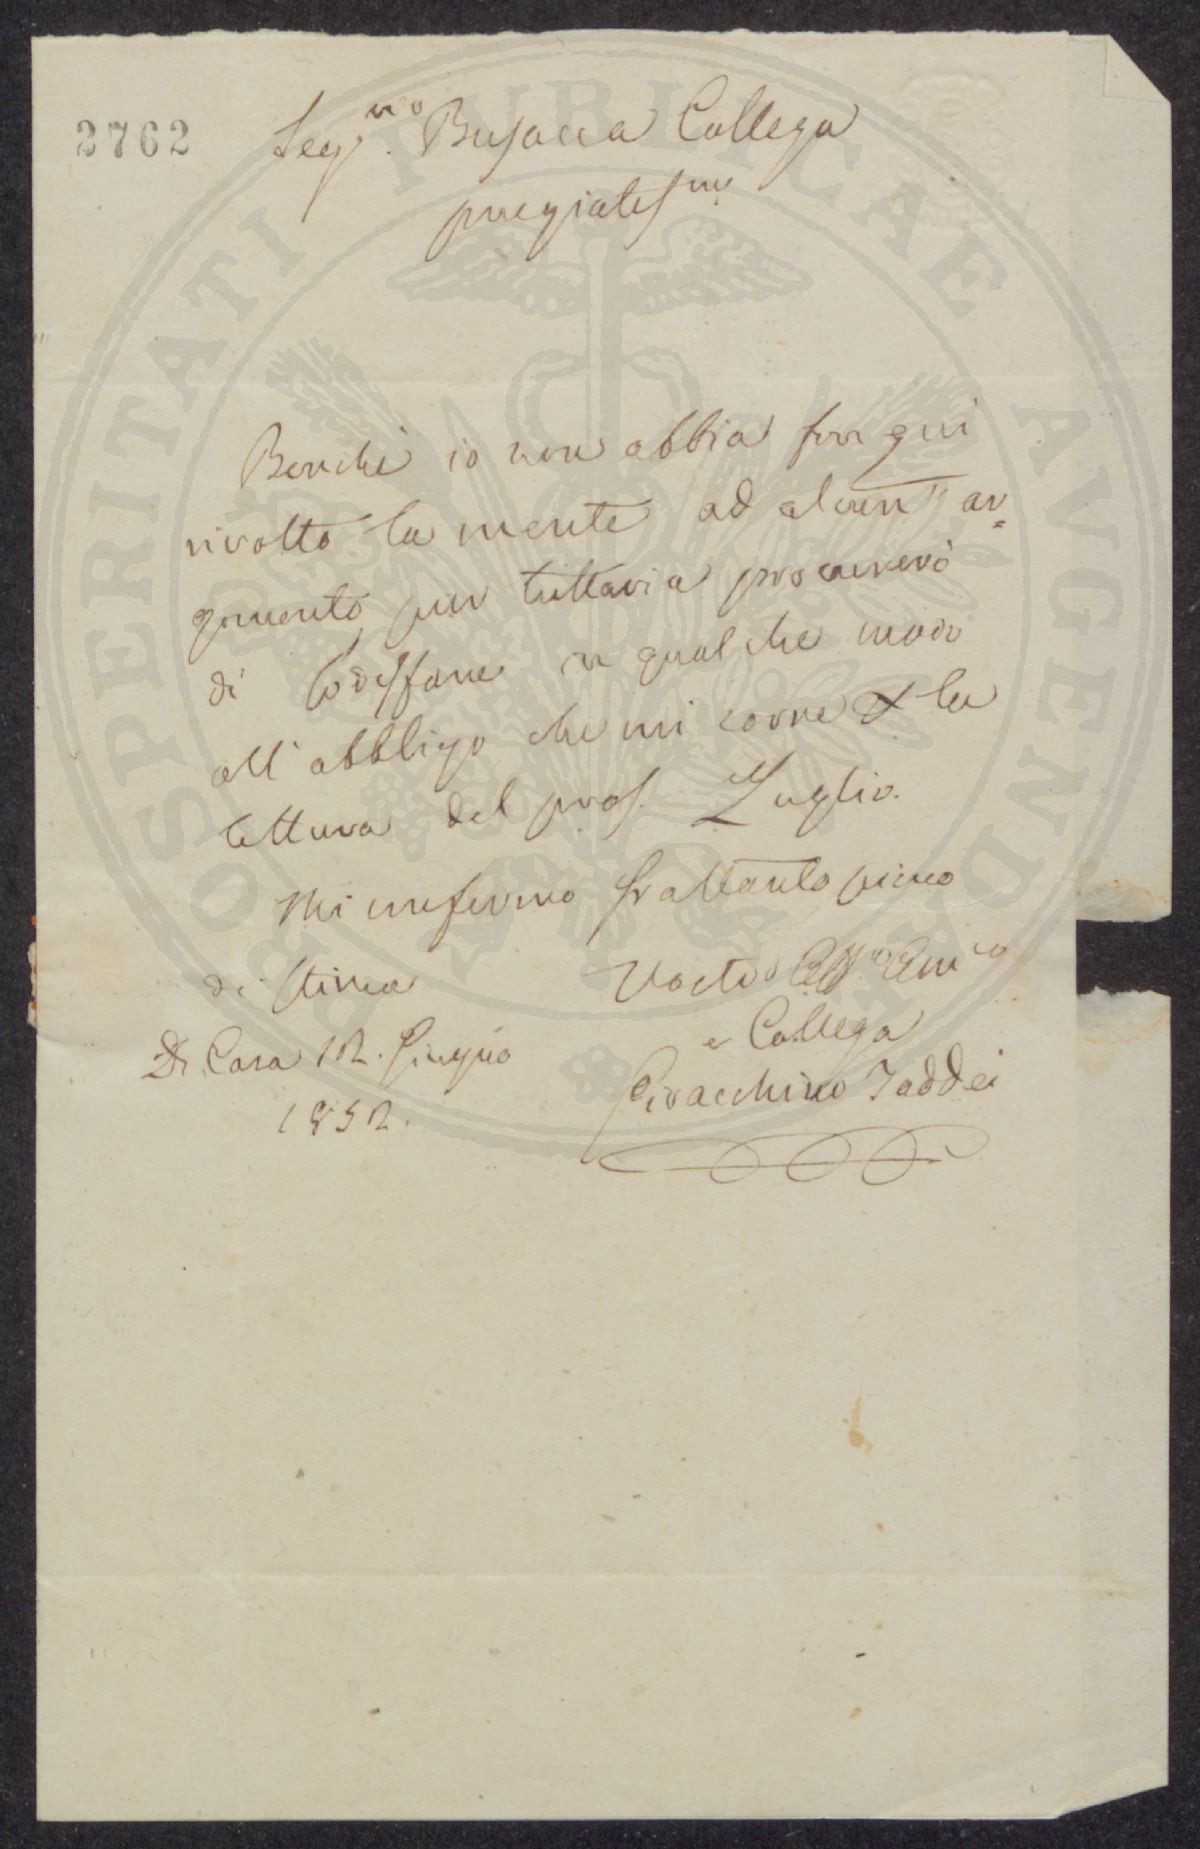 2762
Seg.rio Busacca Collega
pregiatis.mo
Benchè io non abbia fin quì
rivolto la mente ad alcun ar=
gomento, pur tuttavia procurerò
di sodisfare in qualche modo
all' obbligo che mi corre x la
lettura del pros. Luglio.
Mi confermo frattanto pieno
di stima
Vostro Aff.mo Amico
e Collega
Di Casa 12. Giugno
Gioacchino Taddei
1852.
PROSPERITATI PUBLICAE AVGENDAE